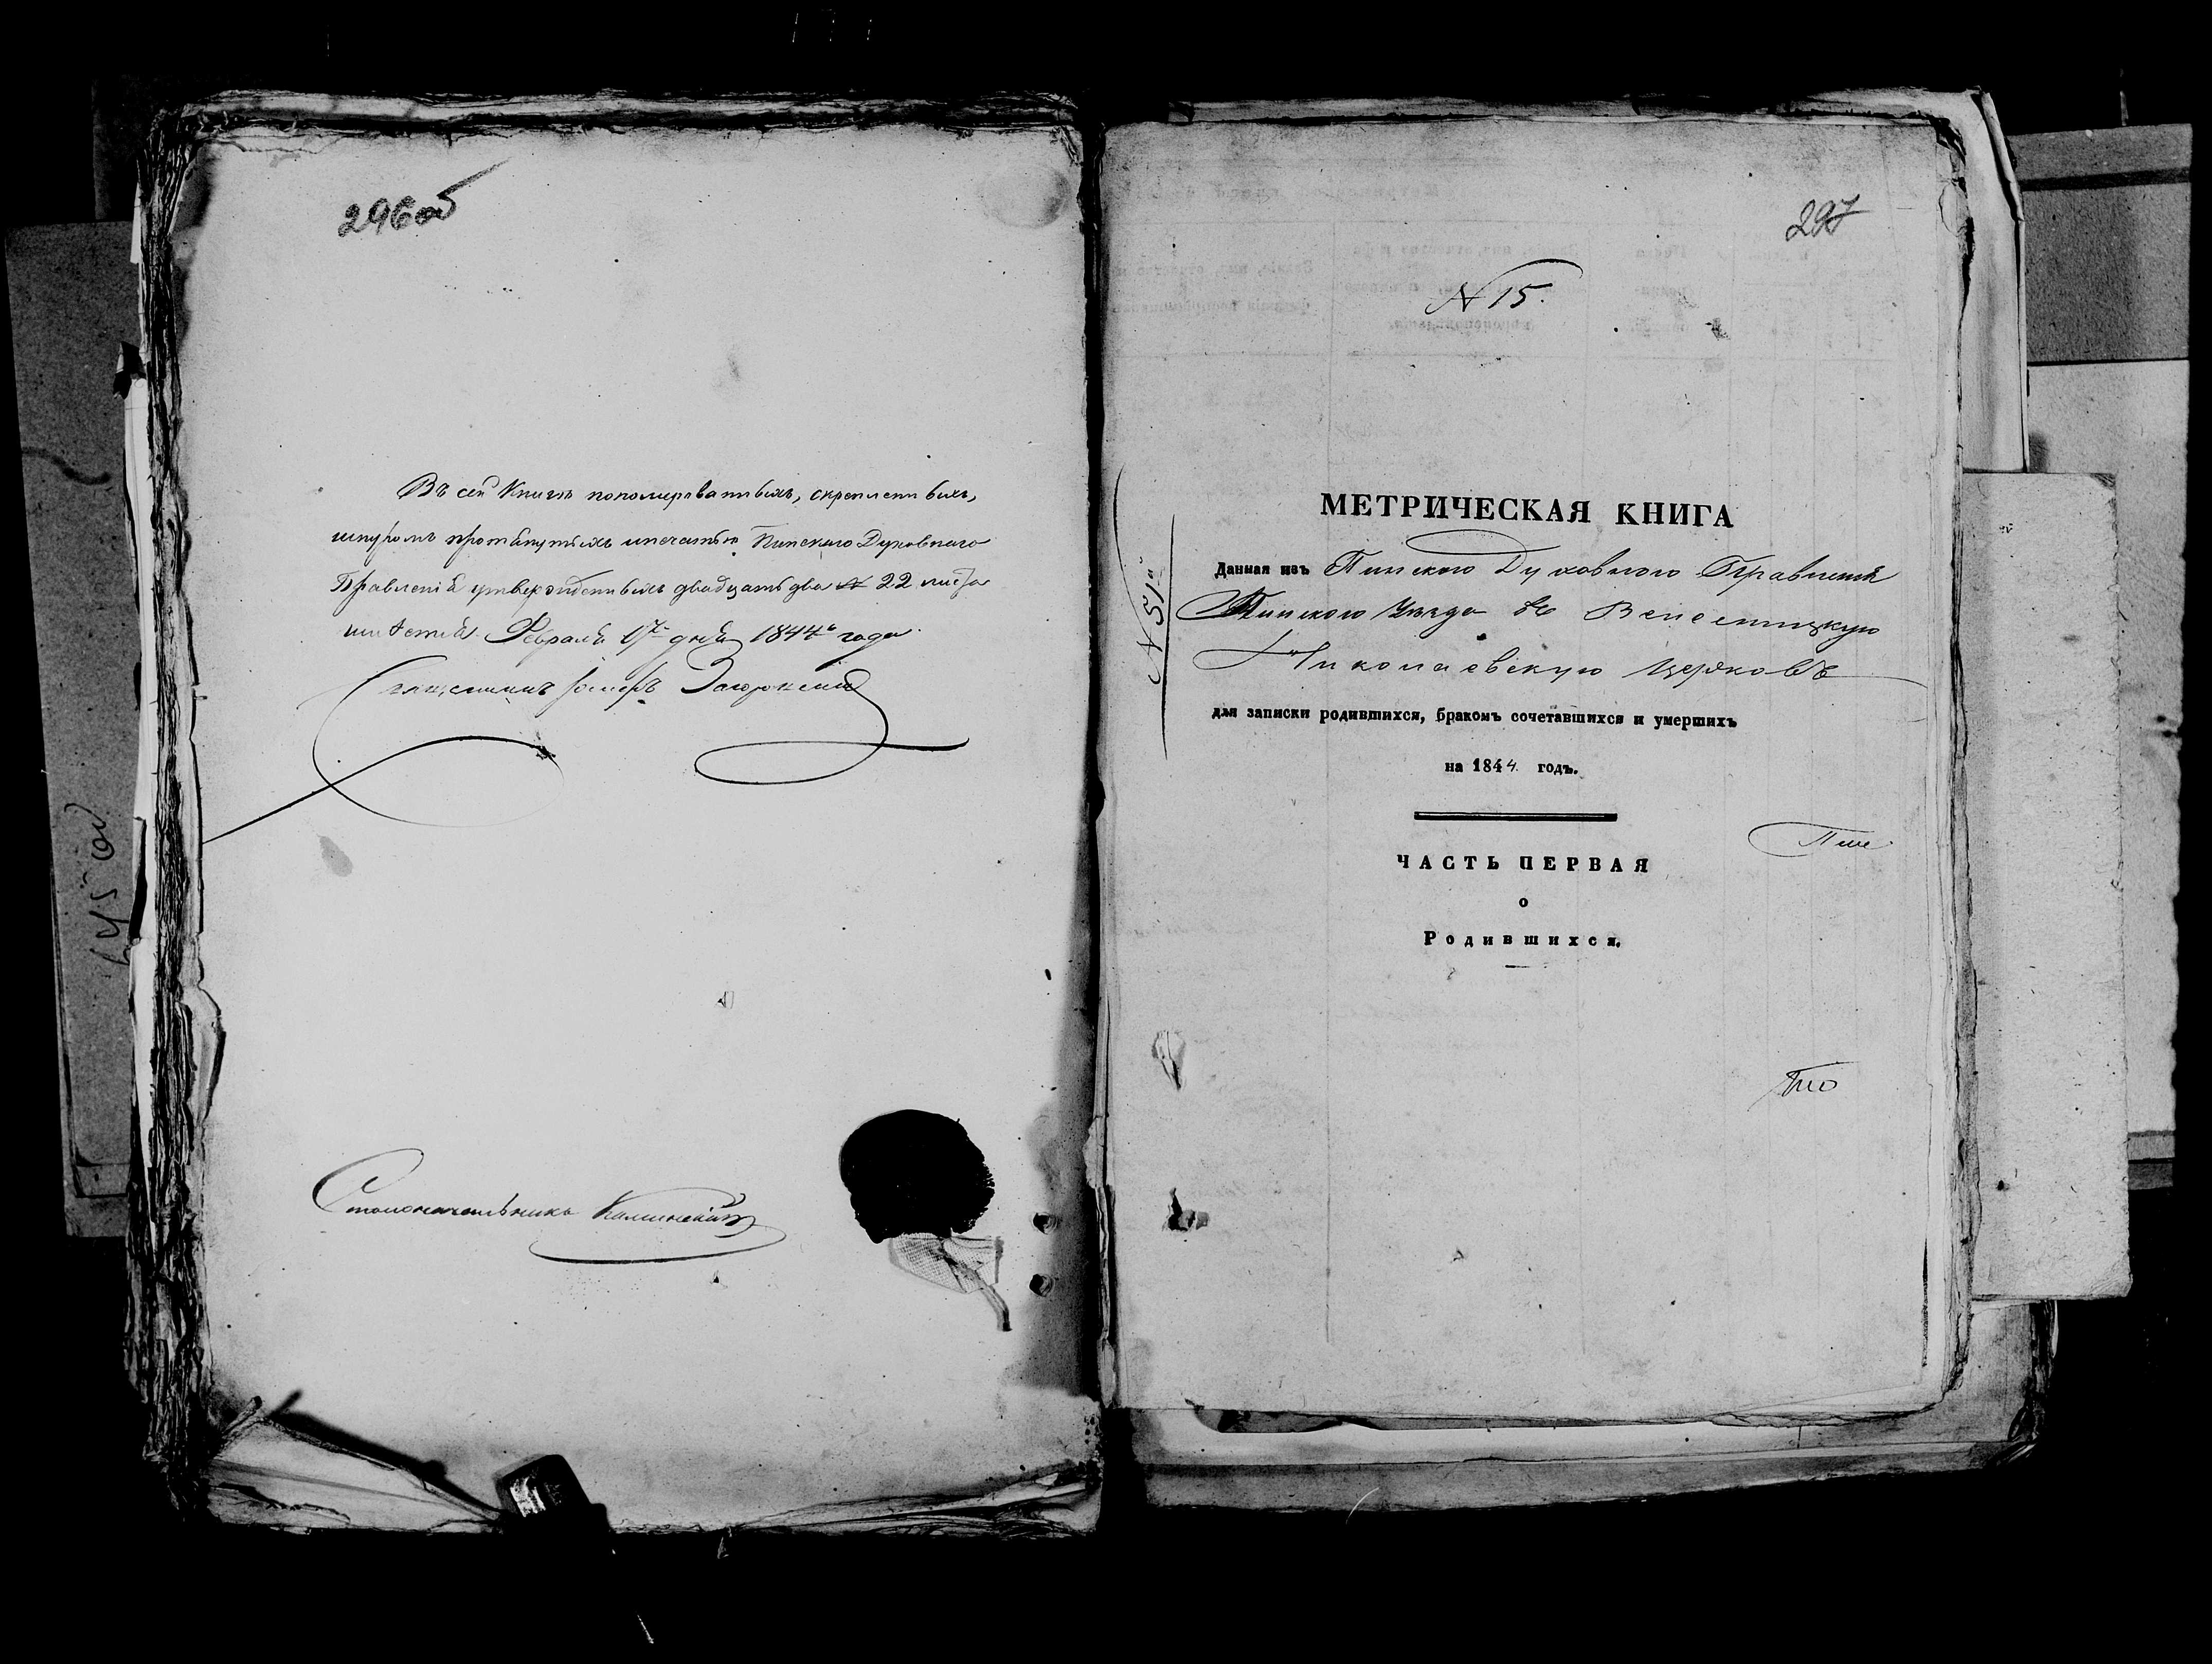 296об
Въ сей Книгѣ пономерованныхъ, скрепленныхъ,
шнуромъ протянутыхъ и печатью Пинскаго Духовнаго
Правленія утвержденныхъ двадцать два № 22 листа
Февраля 17 дня 1844 года.
Священникъ Загоровскій
Столоначальникъ Калинскій
297
N 15.
N 51
МЕТРИЧЕСКАЯ КНИГА
Данная изъ Пинскаго Духовнаго Правленія
Пинскаго Уѣзда въ Велесницкую
Николаевскую церковь
для записки родившихся, бракомъ сочетавшихся и умершихъ
на 1844 годъ.
ЧАСТЬ ПЕРВАЯ
о
Родившихся.